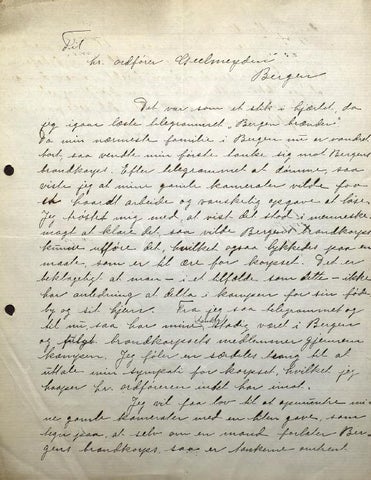 Til
hr. ordfører Geelmeyden
Bergen
Det var som et stik i hjertet, da
jeg igaar læste telegrammet „Bergen brænder".
Da min nærmeste familie i Bergen nu er vandret
bort, saa vendte min første tanke sig mot Bergens
brandkorps. Efter telegrammet at dømme, saa
viste jeg at mine gamle kamerater vilde faa
et haardt arbeide og vanskelig opgave at løse.
Jeg trøstet mig med, at vist det stod i menneske
magt at klare det saa vilde Bergens brandkorps
kunde utføre det, hvilket ogsaa lykkedes paa en
maate, som er til ære for korpset. Det er
beklageligt at man – i et tilfælde som dette – ikke
har anledning at delta i kampen for sin føde
by og sit hjem. Fra jeg saa telegrammet og
til nu, saa har mine tanker stadig været i Bergen
og fulgt brandkorpsets medlemmer gjennem
kampen. Jeg føler en særdeles trang til at
uttale min sympati for korpset, hvilket jeg
haaper hr. ordføreren intet har imot.
Jeg vil faa lov til at opmuntre mi-
ne gamle kamerater med en liten gave, som
tegn paa, at selv om en mand forlater Ber-
gens brandkorps, saa er tankerne omkring